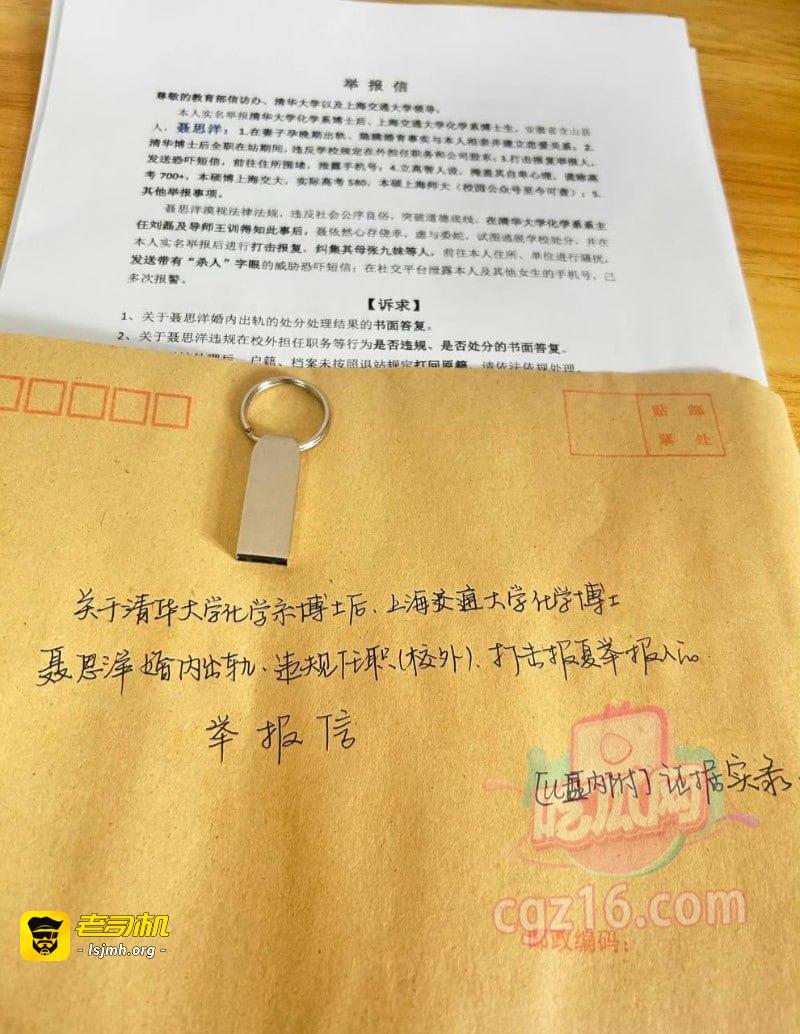 举 报 信
尊敬的教育部信访办、清华大学以及上海交通大学领导，
本人实名举报清华大学化学系博士后、上海交通大学化学系博士生，安徽省含山县
人，聂思洋：1.在妻子孕晚期出轨、隐瞒婚育事实与本人相亲并建立恋爱关系。2.
清华博士后全职在站期间，违反学校规定在外担任职务和公司股东；3.打击报复举报人，
发送恐吓短信，前往住所围堵，泄露手机号；4.立高智人设，掩盖其自卑心理，谎称高
考700+，本硕博上海交大，实际高考580，本硕上海师大（校园公众号至今可查）；5.
其他举报事项。
聂思洋漠视法律法规，违反社会公序良俗，突破道德底线，在清华大学化学系系主
任刘磊及导师王训得知此事后，聂依然心存侥幸，虚与委蛇，试图逃脱学校处分，并在
本人实名举报后进行打击报复，纠集其母张九妹等人，前往本人住所、单位进行骚扰，
发送带有“杀人”字眼的威胁恐吓短信；在社交平台泄露本人及其他女生的手机号，已
多次报警。
【诉求】
1、关于聂思洋婚内出轨的处分处理结果的书面答复。
2、关于聂思洋违规在校外担任职务等行为是否违规、是否处分的书面答复。
处理后，户籍、档案未按照退站规定打回原籍，请依法依规处理。
贴 邮
票 处
关于清华大学化学系博士后、上海交通大学化学博士
聂思洋婚内出轨、违规任职（校外）、打击报复举报人的
举 报 信
[U盘内附] 证据实录.
吃瓜网
cgz16.com
邮政编码：
老司机
- lsjmh.org -